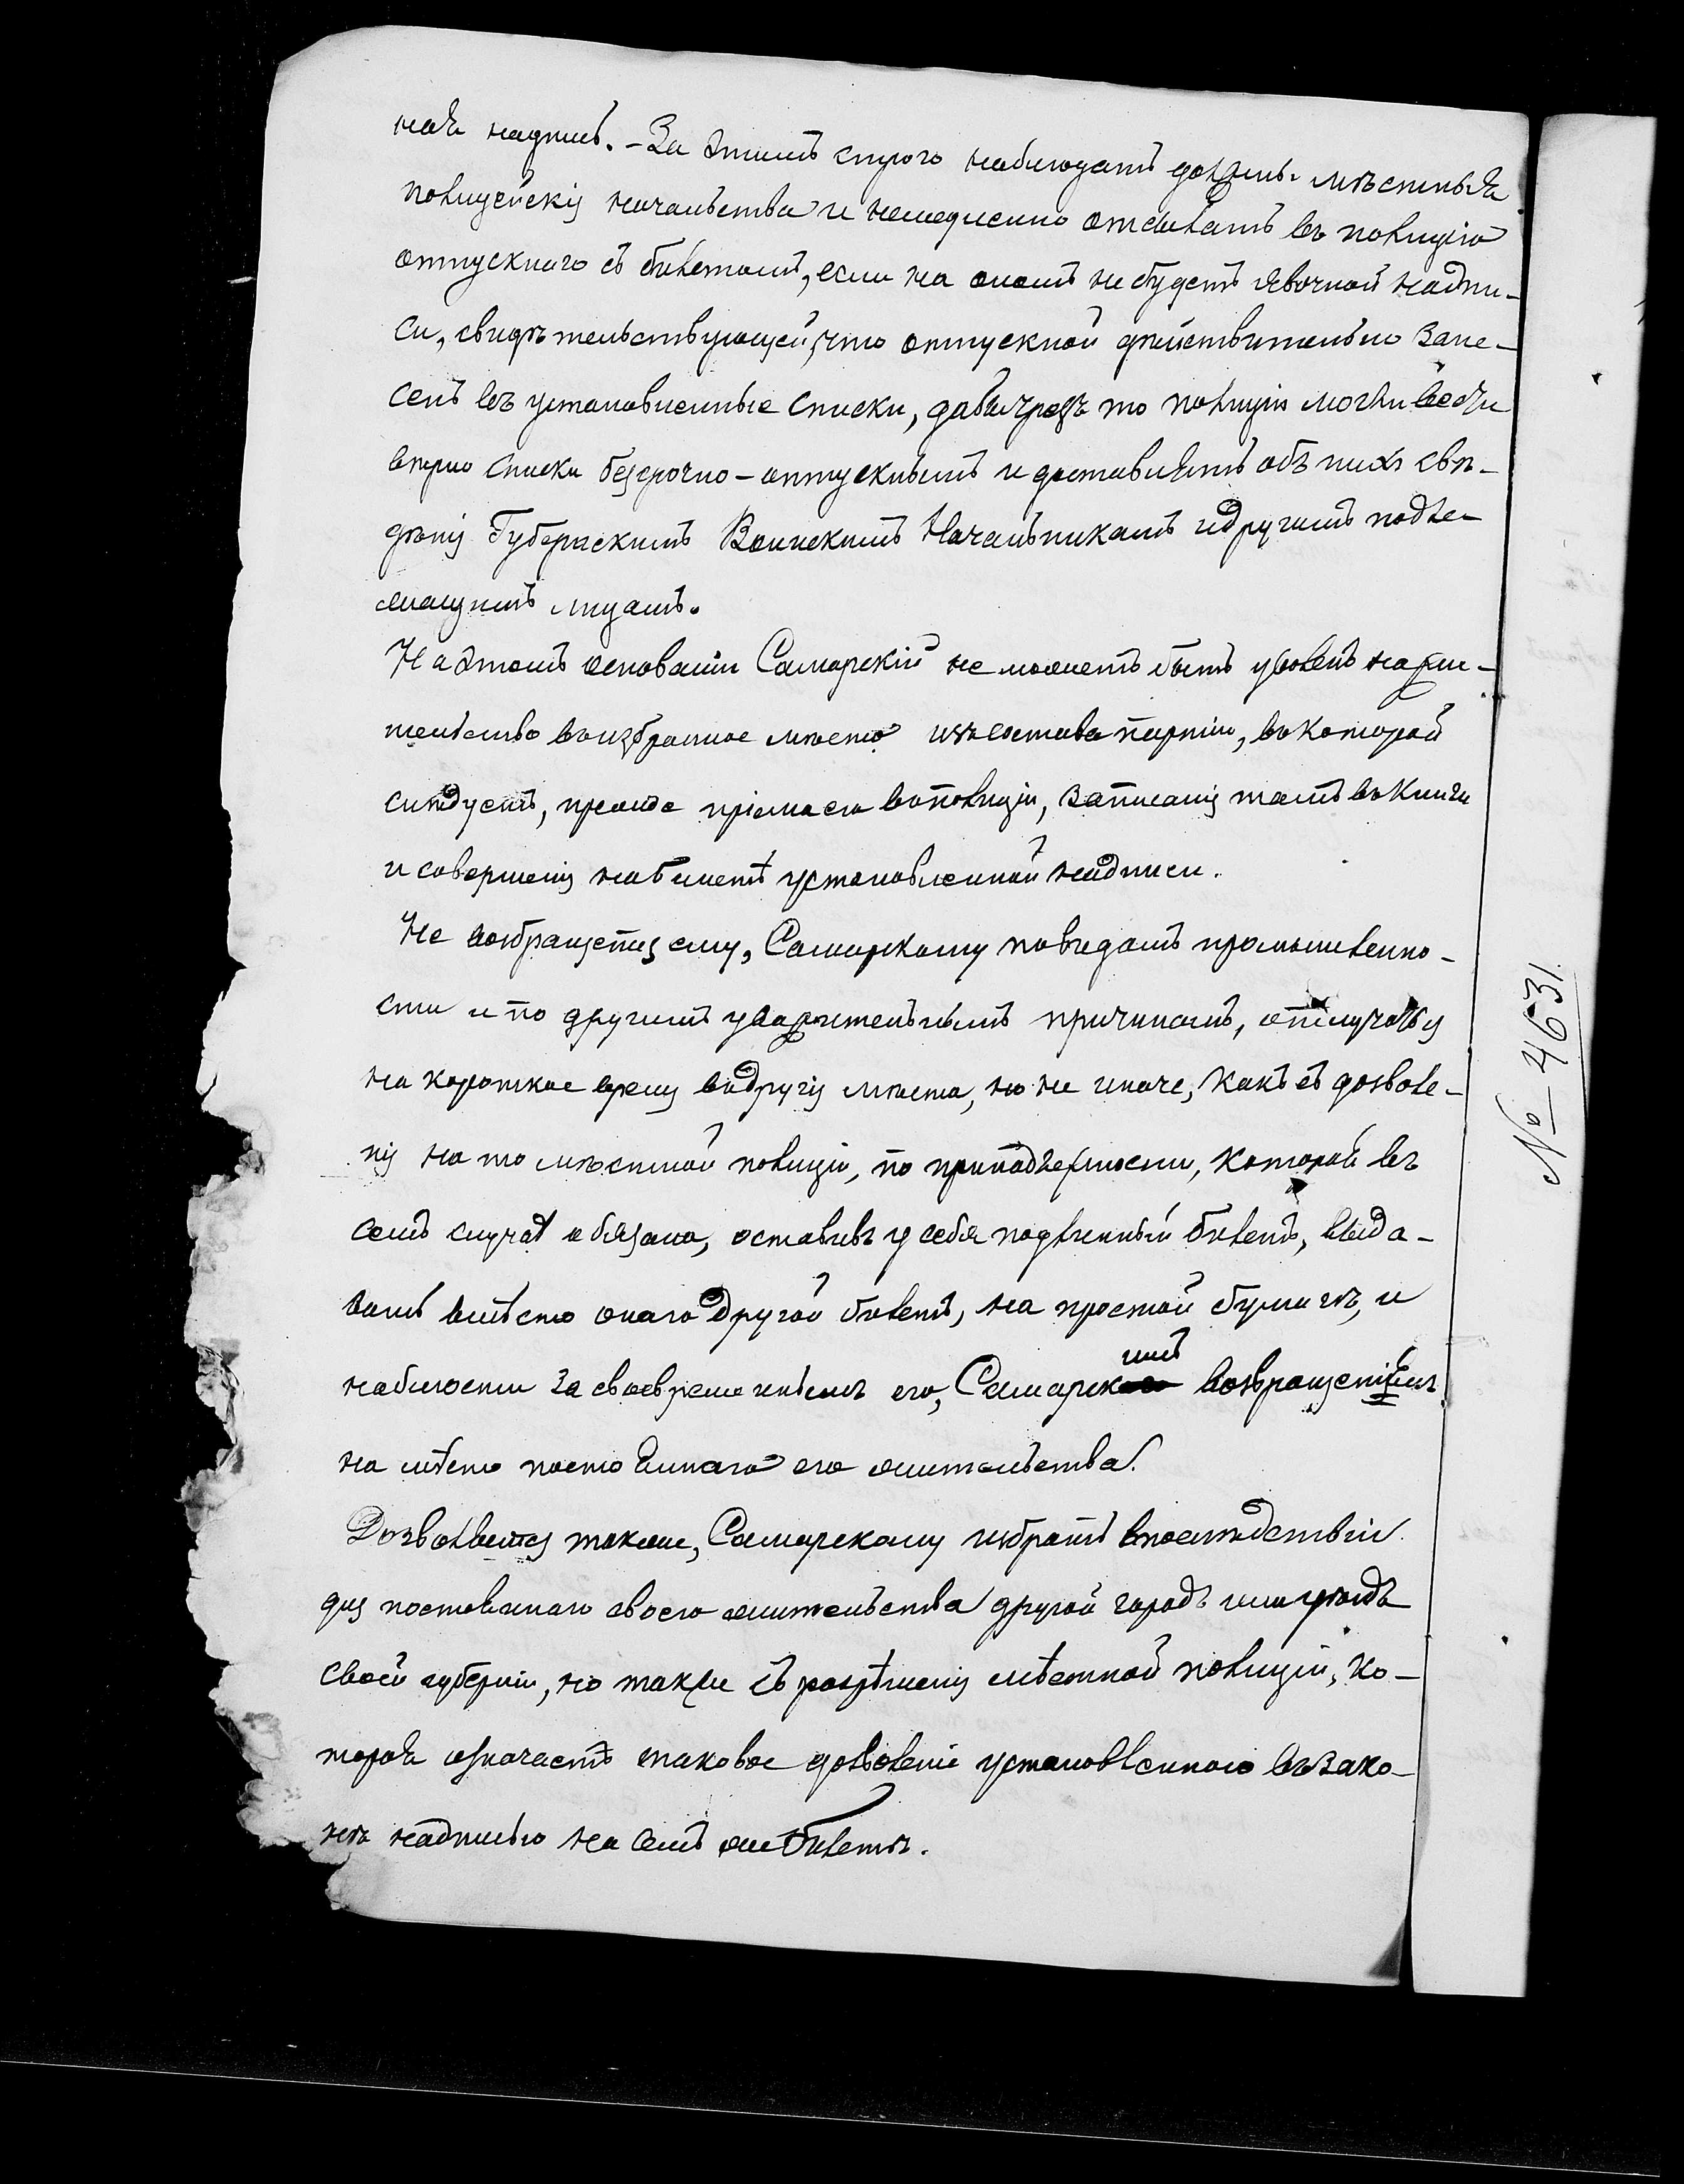 ная надпись. – За этимъ строго наблюдать должны мѣстныя
полицейскія начальства и немедленно отсылать въ полицію
отпускнаго съ билетомъ, если на ономъ не будетъ явочной надпи-
си, свидѣтельствующей, что отпускной дѣйствительно зане-
сенъ въ установленные списки, дабы чрезъ то полиція могли вести
вѣрно списки безсрочно-отпускнымъ и доставлять объ нихъ свѣ-
дѣнія Губернскимъ Воинскимъ Начальникамъ и другимъ подле-
жащимъ лицамъ.
На этомъ основаніи Самарскій не можетъ быть уволенъ на жи-
тельство въ избранное мѣсто изъ состава партіи, въ которой
слѣдуетъ, прежде пріема его въ полиціи, записанія тамъ въ книги
и совершенія на билетѣ установленной надписи.
Не воспрещается ему, Самарскому по видамъ промышленно-
сти и по другимъ уважительнымъ причинамъ, отлучаться
на короткое время въ другія мѣста, но не иначе, какъ съ дозволе-
нія на то мѣстной полиціи, по принадлежности, которой въ
семъ случаѣ обязана, оставивъ у себя подлинный билетъ, выда-
вать вмѣсто онаго другой билетъ, на простой бумагѣ, и
наблюсти за своевременнымъ его, Самарскимъ возвращеніемъ
на мѣсто постояннаго его жительства.
Дозволяется также, Самарскому избрать впослѣдствіи
для постояннаго своего жительства другой городъ или уѣздъ
своей губерніи, но также съ разрѣшенія мѣстной полиціи, ко-
торая означаетъ таковое дозволеніе установленною въ зако-
нѣ надписью на семъ же билетѣ.
№ 4631.